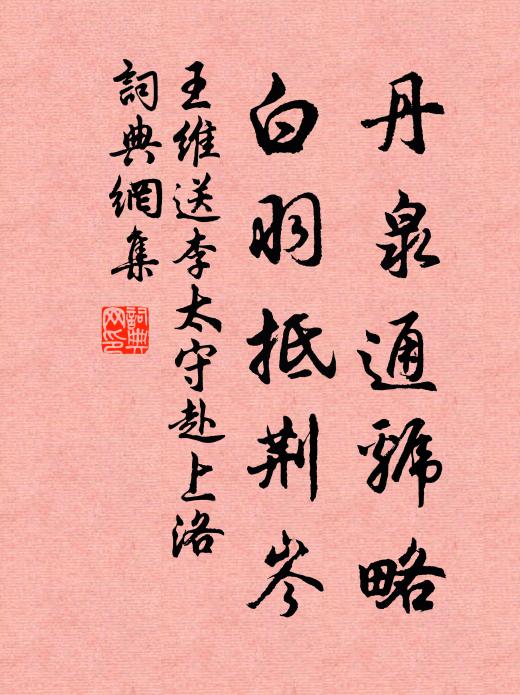 丹泉通虢略
白羽抵荆岑
王維送李太守赴上洛
詞典網集
詞典网印